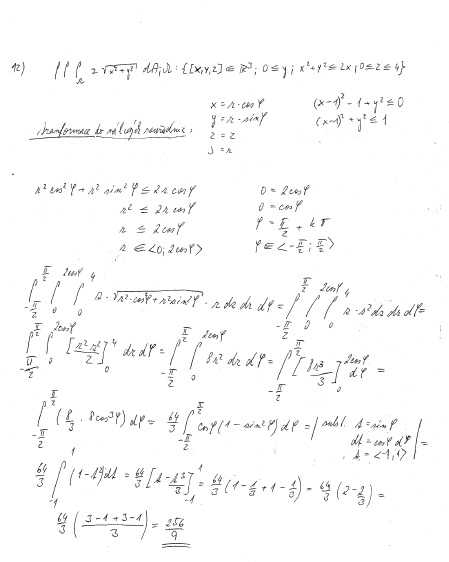 12) ∫∫∫_Ω z √(x²+y²) dA; Ω: {[x,y,z] ∈ ℝ³; 0 ≤ y; x²+y² ≤ 2x; 0 ≤ z ≤ 4}
x = r·cosφ (x-1)² - 1 + y² ≤ 0
y = r·sinφ (x-1)² + y² ≤ 1
z = z
J = r
r² cos²φ + r² sin²φ ≤ 2r cosφ 0 = 2cosφ
r² ≤ 2r cosφ 0 = cosφ
r ≤ 2cosφ φ = π/2 + kπ
r ∈ <0; 2cosφ> φ ∈ <-π/2; π/2>
∫_{-π/2}^{π/2} ∫_0^{2cosφ} ∫_0^4 z·√(r²·cos²φ + r² sin²φ) · r dz dr dφ = ∫_{-π/2}^{π/2} ∫_0^{2cosφ} ∫_0^4 z·r² dz dr dφ =
∫_{-π/2}^{π/2} ∫_0^{2cosφ} [r² z²/2]_0^4 dr dφ = ∫_{-π/2}^{π/2} ∫_0^{2cosφ} 8r² dr dφ = ∫_{-π/2}^{π/2} [8r³/3]_0^{2cosφ} dφ =
∫_{-π/2}^{π/2} (8/3 · 8cos³φ) dφ = 64/3 ∫_{-π/2}^{π/2} cosφ(1-sin²φ) dφ = | subst. t = sinφ
dt = cosφ dφ
t = <-1;1> | =
64/3 ∫_{-1}^{1} (1-t²)dt = 64/3 [t - t³/3]_{-1}^{1} = 64/3 (1 - 1/3 + 1 - 1/3) = 64/3 (2 - 2/3) =
64/3 ((3-1+3-1)/3) = 256/9